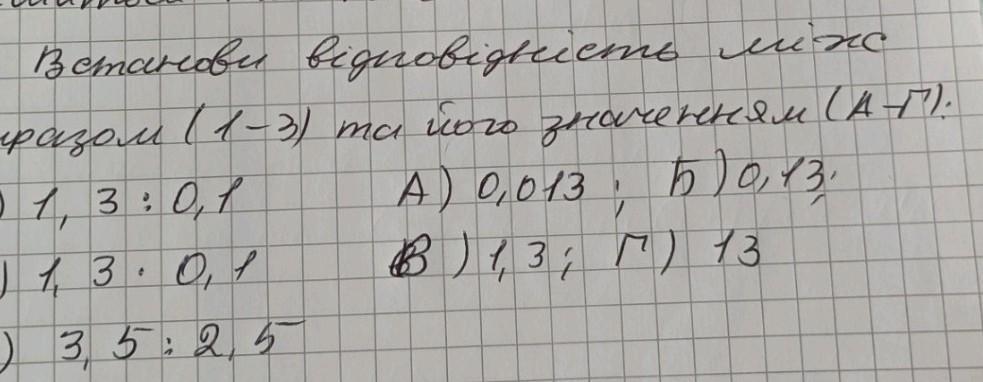 Встанови відповідність між
иразом (1-3) та його значенням (А-Г):
) 1, 3 : 0,1 А) 0,013 ; Б) 0,13;
) 1, 3 · 0, 1 В) 1,3 ; Г) 13
) 3, 5 : 2, 5